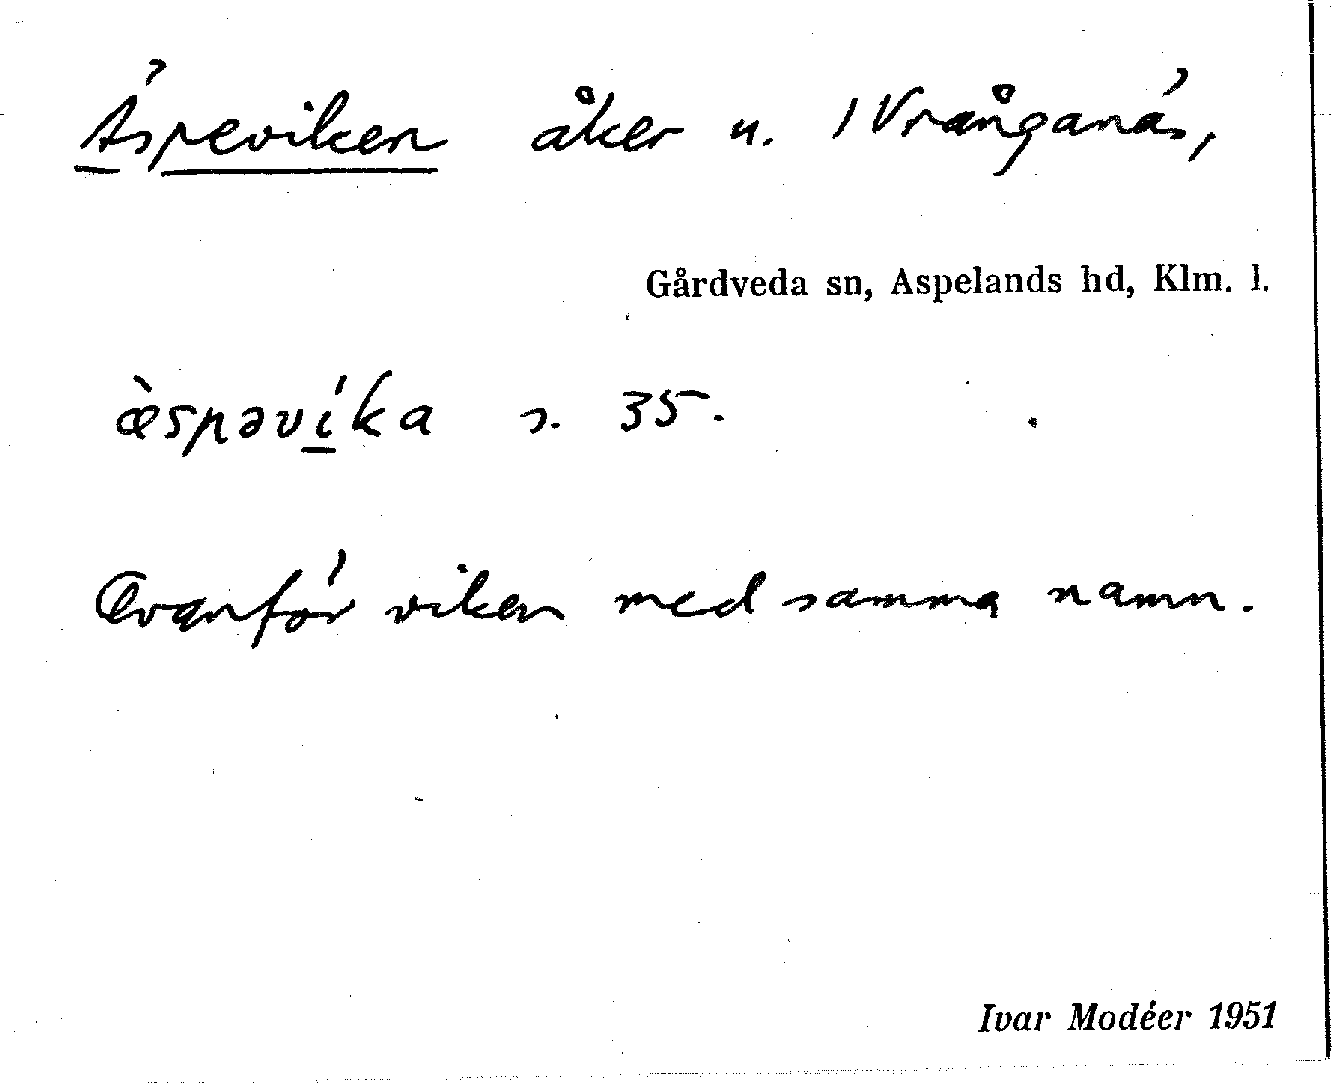 Äspeviken åker u. 1 Vrånganäs,
Gårdveda sn, Aspelands hd, Klm. l.
æ̀spəvíka s. 35.
Ovanför viken med samma namn.
Ivar Modéer 1951